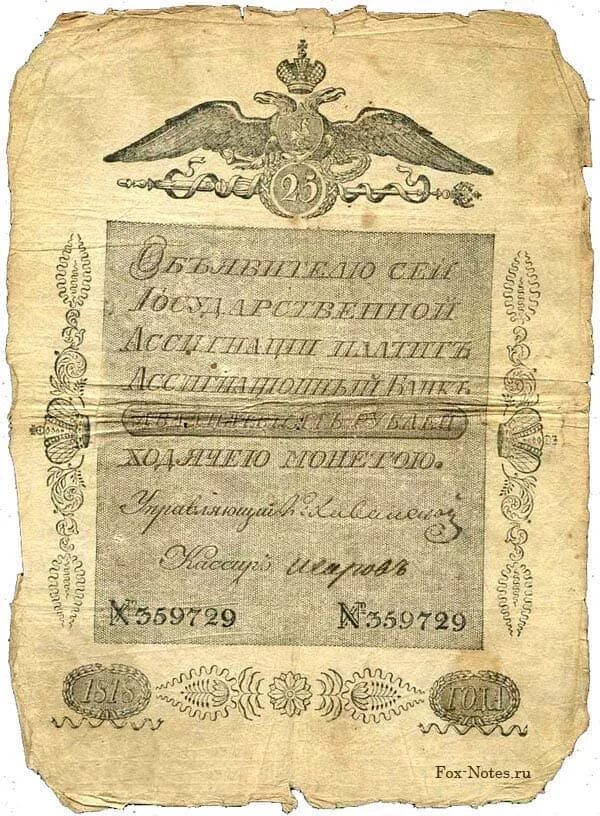 25
Объявителю сей
Государственной
Ассигнации платитъ
Ассигнационный Банкъ
двадцать пять рублей
ходячею монетою.
Управляющий
Кассиръ
№ 359729 № 359729
1818 года
Fox-Notes.ru